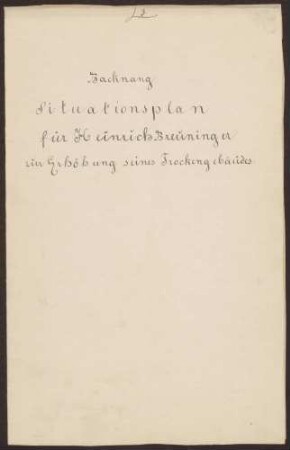 Backnang
Situationsplan
für Heinrich Breuninger
zur Erhöhung seines Trockengebäudes